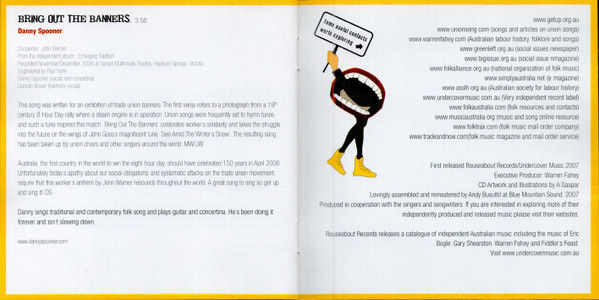 BRING OUT THE BANNERS. 3.56
Danny Spooner.
Songwriter: John Warner
From the independent album: 'Emerging Tradition'
Recorded November/December 2006 at Sunset Multimedia Studios, Hepburn Springs, Victoria.
Engineered by
Danny Spooner (vocals and concertina)
Duncan Brown (harmony vocals)
This song was written for an exhibition of trade union banners. The first verse refers to a photograph from a 19th
century 8 Hour Day rally where a steam engine is in operation. Union songs were frequently set to hymn tunes
and such a tune inspired this match. Bring Out The Banners celebrates worker's solidarity and takes the struggle
into the future on the wings of John Goss's magnificent tune, See Amid The Winter's Snow. The resulting song
has been taken up by union choirs and other singers around the world. MW/JW
Australia, the first country in the world to win the eight hour day, should have celebrated 150 years in April 2006.
Unfortunately today's apathy about our social obligations and systematic attacks on the trade union movement
require that this worker's anthem by John Warner resounds throughout the world. A great song to sing so get up
and sing it! DS
Danny sings traditional and contemporary folk song and plays guitar and concertina. He's been doing it
forever and isn't slowing down.
www.dannyspooner.com
Some useful contacts
worth exploring
www.getup.org.au
www.unionsong.com (songs and articles on union songs)
www.warrenfahey.com (Australian labour history, folklore and songs)
www.greenleft.org.au (social issues newspaper)
www.bigissue.org.au (social issue mmagazine)
www.folkalliance.org.au (national organization of folk music)
www.simplyaustralia.net (e magazine)
www.asslh.org.au (Australian society for labour history)
www.undercovermusic.com.au (Very independent record label)
www.folkaustralia.com (folk resources and contacts)
www.musicaustralia.org (music and song online resource)
www.folktrax.com (folk music mail order company)
www.tradeandnow.com/folk music magazine and mail order service)
First released Rouseabout Records/Undercover Music 2007
Executive Producer: Warren Fahey
CD Artwork and Illustrations by A.Gaspar
Lovingly assembled and remastered by Andy Busuttil at Blue Mountain Sound. 2007
Produced in cooperation with the singers and songwriters. If you are interested in exploring more of their
independently produced and released music please visit their websites.
Rouseabout Records releases a catalogue of independent Australian music including the music of Eric
Bogle, Gary Shearston, Warren Fahey and Fiddler's Feast.
Visit www.undercovermusic.com.au